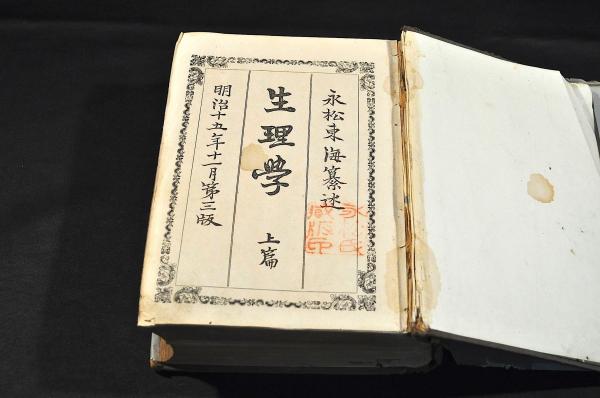 永松東海纂述
生理學
上篇
明治十五年十一月第三版
永松氏
蔵版印